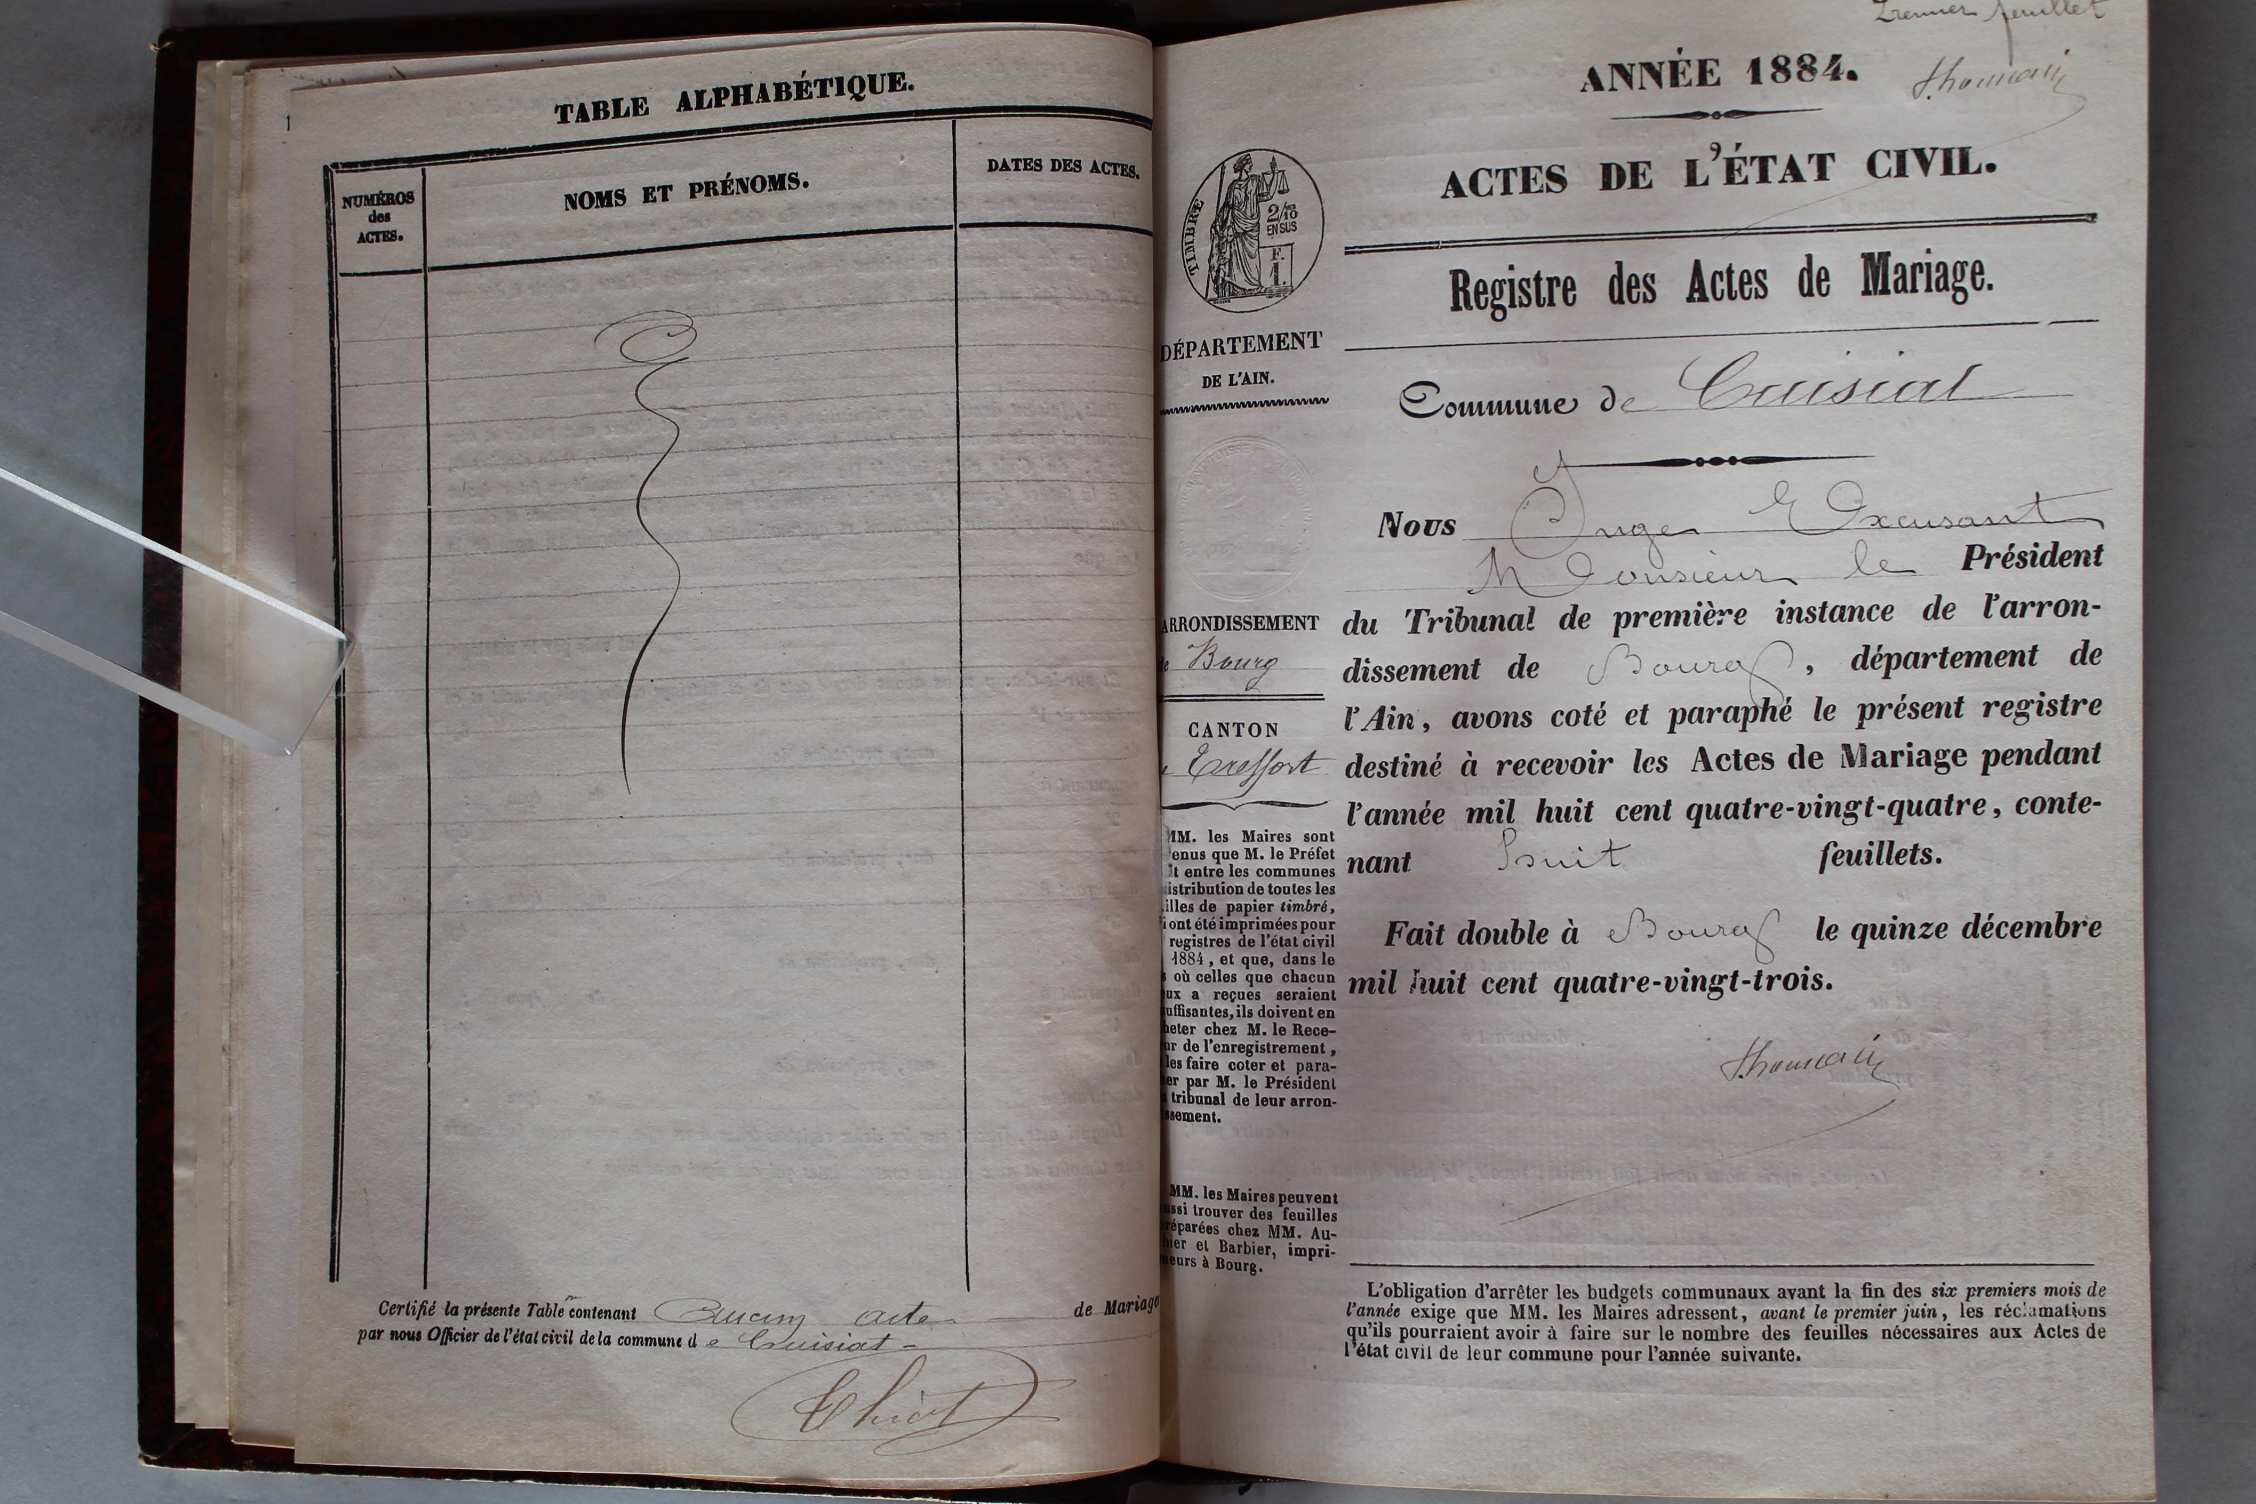 TABLE ALPHABÉTIQUE.
NUMÉROS
des
ACTES.
NOMS ET PRÉNOMS.
DATES DES ACTES.
Certifié la présente Table contenant Aucun acte de Mariage
par nous Officier de l'état civil de la commune de Cuisiat
Thiot
Premier feuillet
ANNÉE 1884.
ACTES DE L'ÉTAT CIVIL.
Registre des Actes de Mariage.
TIMBRE
2/10
EN SUS
F.
1.
DÉPARTEMENT
DE L'AIN.
ARRONDISSEMENT
de Bourg
CANTON
Treffort
MM. les Maires sont
enus que M. le Préfet
it entre les communes
istribution de toutes les
illes de papier timbré,
i ont été imprimées pour
registres de l'état civil
1884, et que, dans le
s où celles que chacun
ux a reçues seraient
uffisantes, ils doivent en
heter chez M. le Rece-
ur de l'enregistrement,
les faire coter et para-
er par M. le Président
tribunal de leur arron-
ssement.
MM. les Maires peuvent
ssi trouver des feuilles
réparées chez MM. Au-
hier et Barbier, impri-
meurs à Bourg.
Commune de Cuisiat
Nous Juge Excusant
Monsieur le Président
du Tribunal de première instance de l'arron-
dissement de Bourg, département de
l'Ain, avons coté et paraphé le présent registre
destiné à recevoir les Actes de Mariage pendant
l'année mil huit cent quatre-vingt-quatre, conte-
nant huit feuillets.
Fait double à Bourg le quinze décembre
mil huit cent quatre-vingt-trois.
L'obligation d'arrêter les budgets communaux avant la fin des six premiers mois de
l'année exige que MM. les Maires adressent, avant le premier juin, les réclamations
qu'ils pourraient avoir à faire sur le nombre des feuilles nécessaires aux Actes de
l'état civil de leur commune pour l'année suivante.